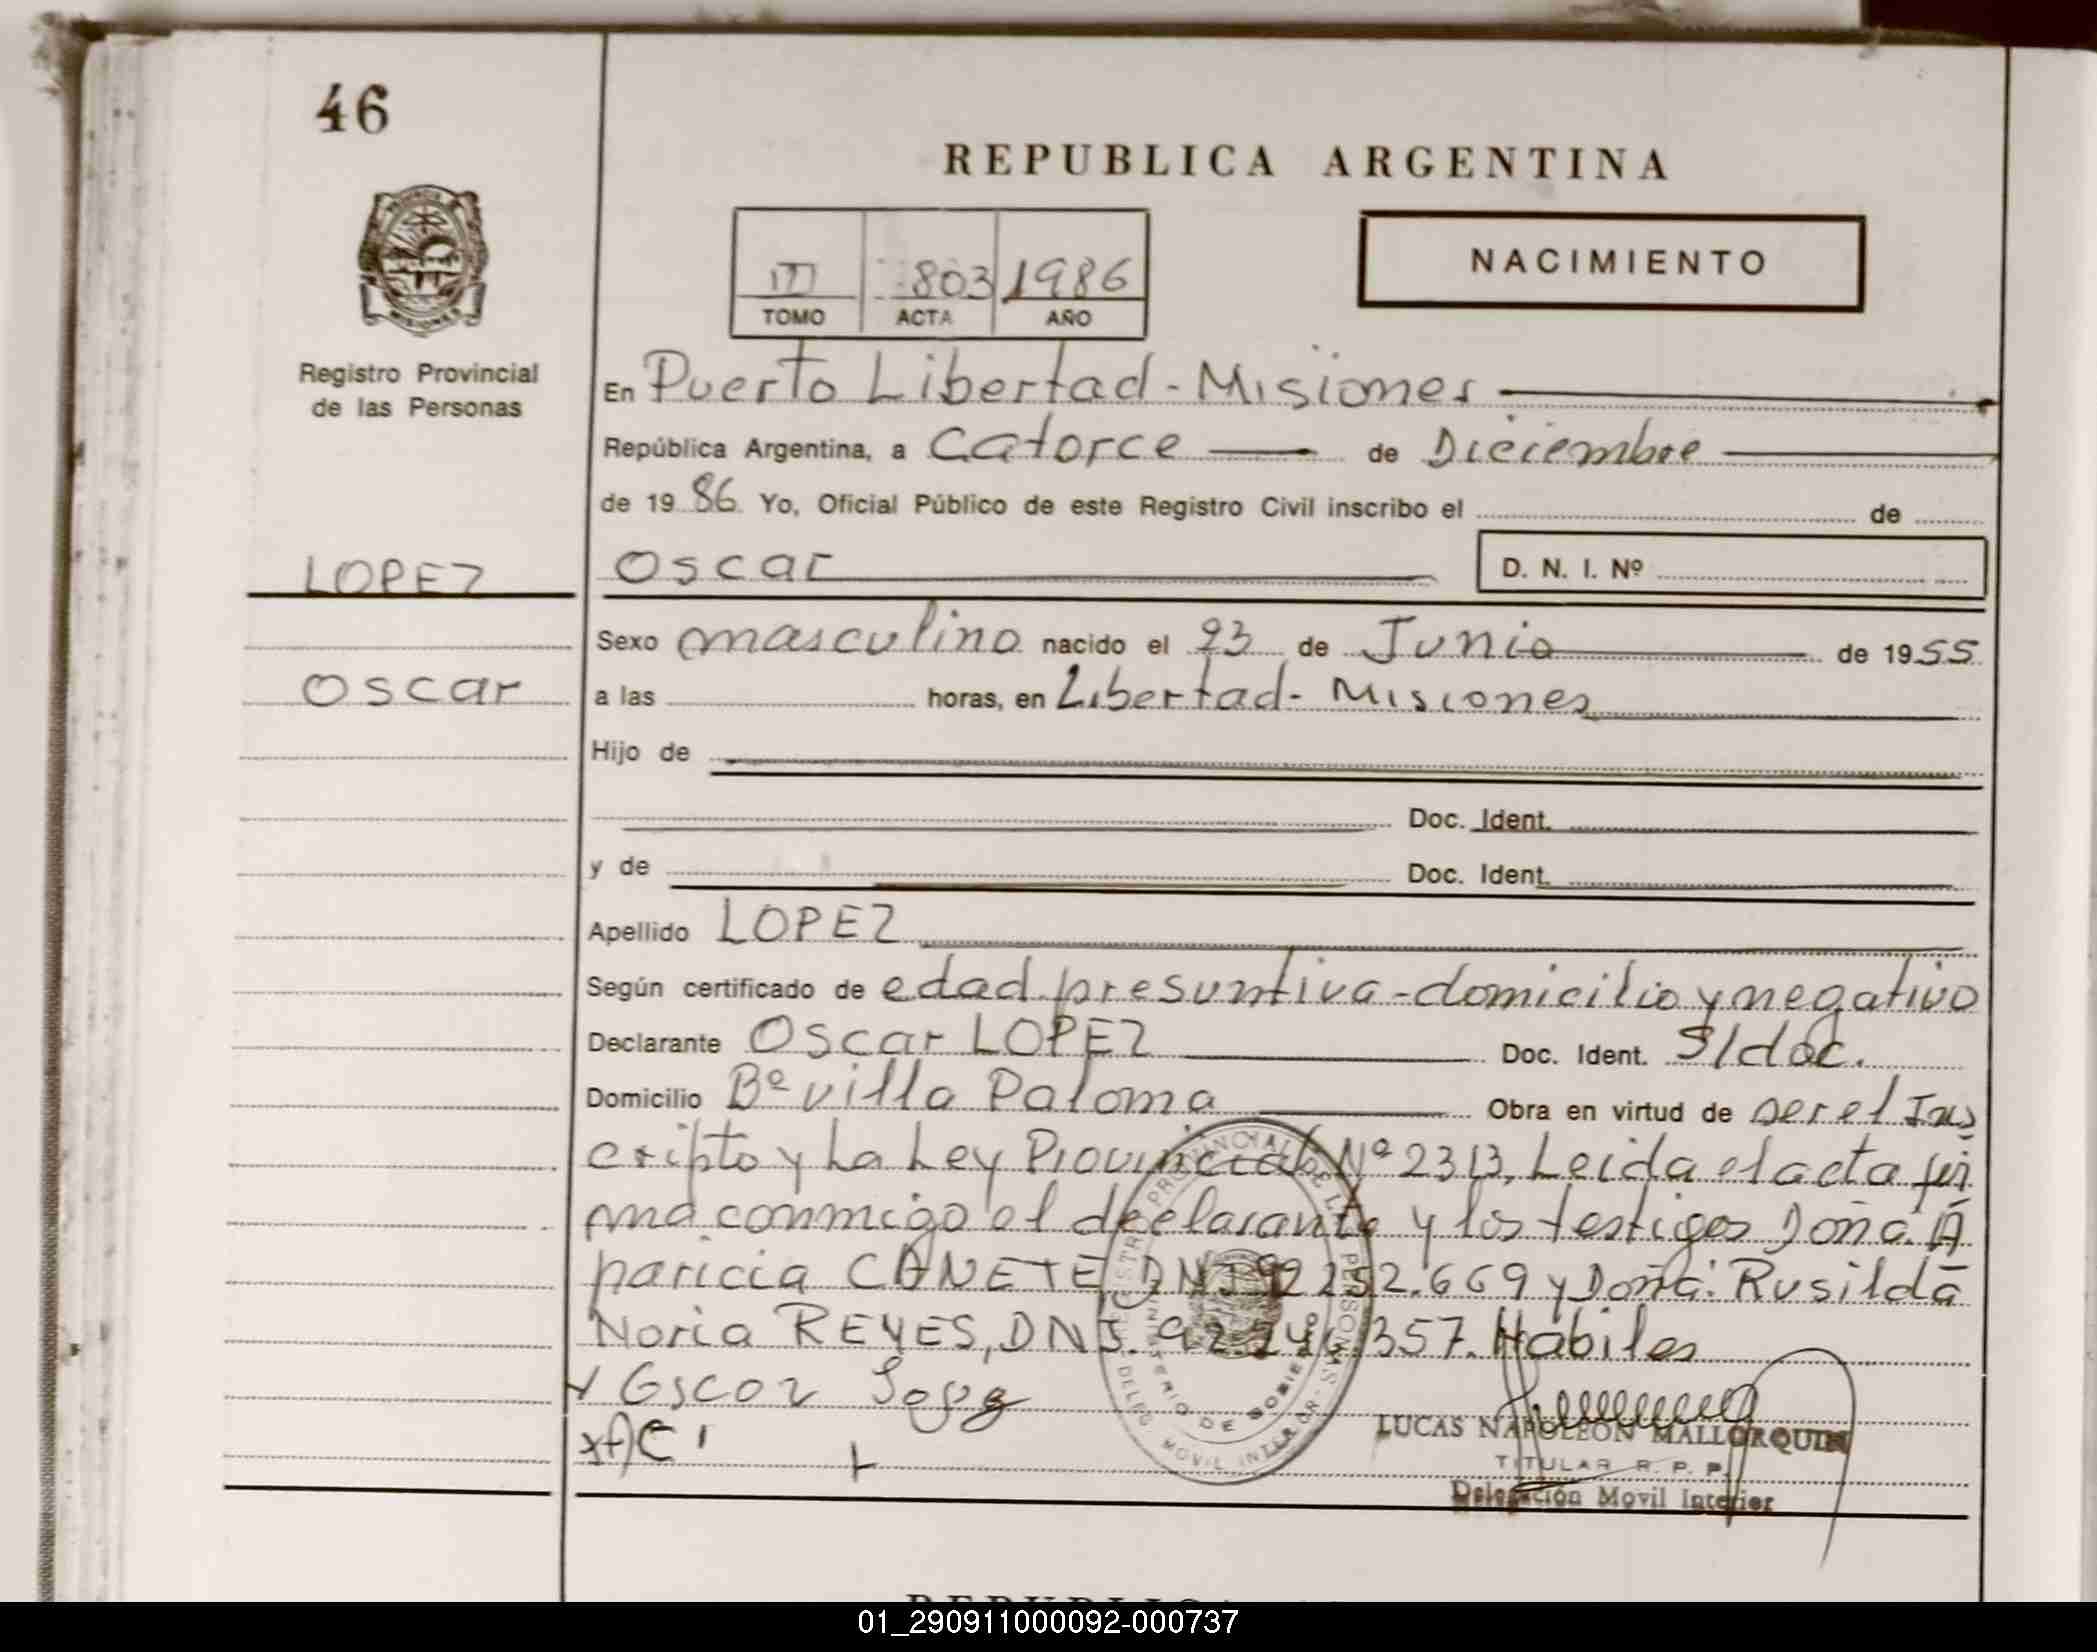 46
REPUBLICA ARGENTINA
NACIMIENTO
III 803 1986
TOMO ACTA AÑO
Registro Provincial
de las Personas
En Puerto Libertad - Misiones
República Argentina, a Catorce de Diciembre
de 1986 Yo, Oficial Público de este Registro Civil inscribo el de
LOPEZ
Oscar
D. N. I. Nº
Sexo masculino nacido el 23 de Junio de 1955
Oscar
a las horas, en Libertad - Misiones
Hijo de
Doc. Ident.
y de Doc. Ident.
Apellido LOPEZ
Según certificado de edad presuntiva - domicilio y negativo
Declarante Oscar LOPEZ Doc. Ident. S/doc.
Domicilio Bº Villa Paloma Obra en virtud de ser el Ins
cripto y La Ley Provincial Nº 2313, Leida el acta fir
ma conmigo el declarante y los testigos Doña: A
paricia CANETE, DNI 92252.669 y Doña: Rusilda
Noria REYES, DNI. 357. Habiles
Oscar
LUCAS NAPOLEON MALLORQUIN
TITULAR R. P. P.
Delegación Movil Interior
REPUBLICA
01_290911000092-000737